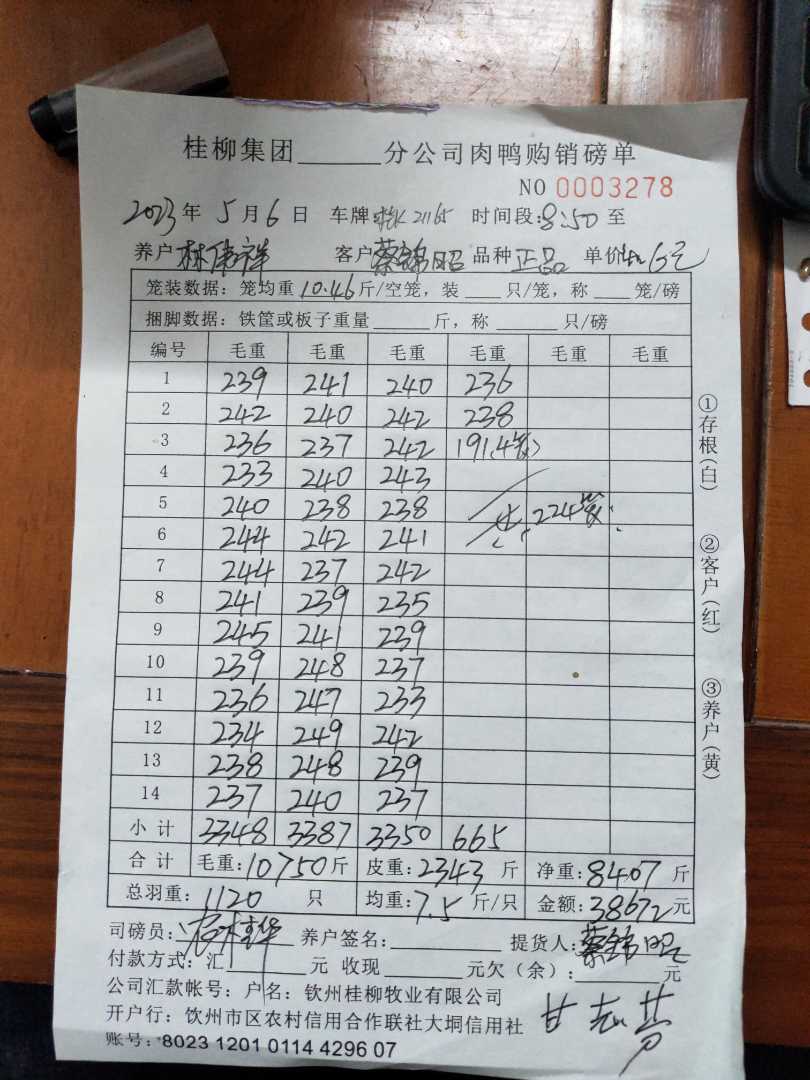 桂柳集团______分公司肉鸭购销磅单
NO 0003278
2023 年 5 月 6 日 车牌 21165 时间段:8:50 至
养户 林伟祥 客户 蔡锦昭 品种 正品 单价 4.6元
笼装数据:笼均重 10.46 斤/空笼,装___只/笼,称___笼/磅
捆脚数据:铁筐或板子重量_____斤,称_____只/磅
编号 毛重 毛重 毛重 毛重 毛重 毛重
1 239 241 240 236
2 242 240 242 238
3 236 237 242 191(4笼)
4 233 240 243
5 240 238 238 224笼
6 244 242 241
7 244 237 242
8 241 239 235
9 245 241 239
10 239 248 237
11 236 247 233
12 234 249 242
13 238 248 239
14 237 240 237
小计 3348 3387 3350 665
合计 毛重:10750斤 皮重:2343 斤 净重:8407斤
总羽重:1120 只 均重:7.5斤/只 金额:38672元
司磅员: 养户签名:________ 提货人:蔡锦昭
付款方式:汇______元 收现______元欠(余):______元
公司汇款帐号:户名:钦州桂柳牧业有限公司
开户行:饮州市区农村信用合作联社大垌信用社
账号:8023 1201 0114 4296 07
①存根(白)
②客户(红)
③养户(黄)